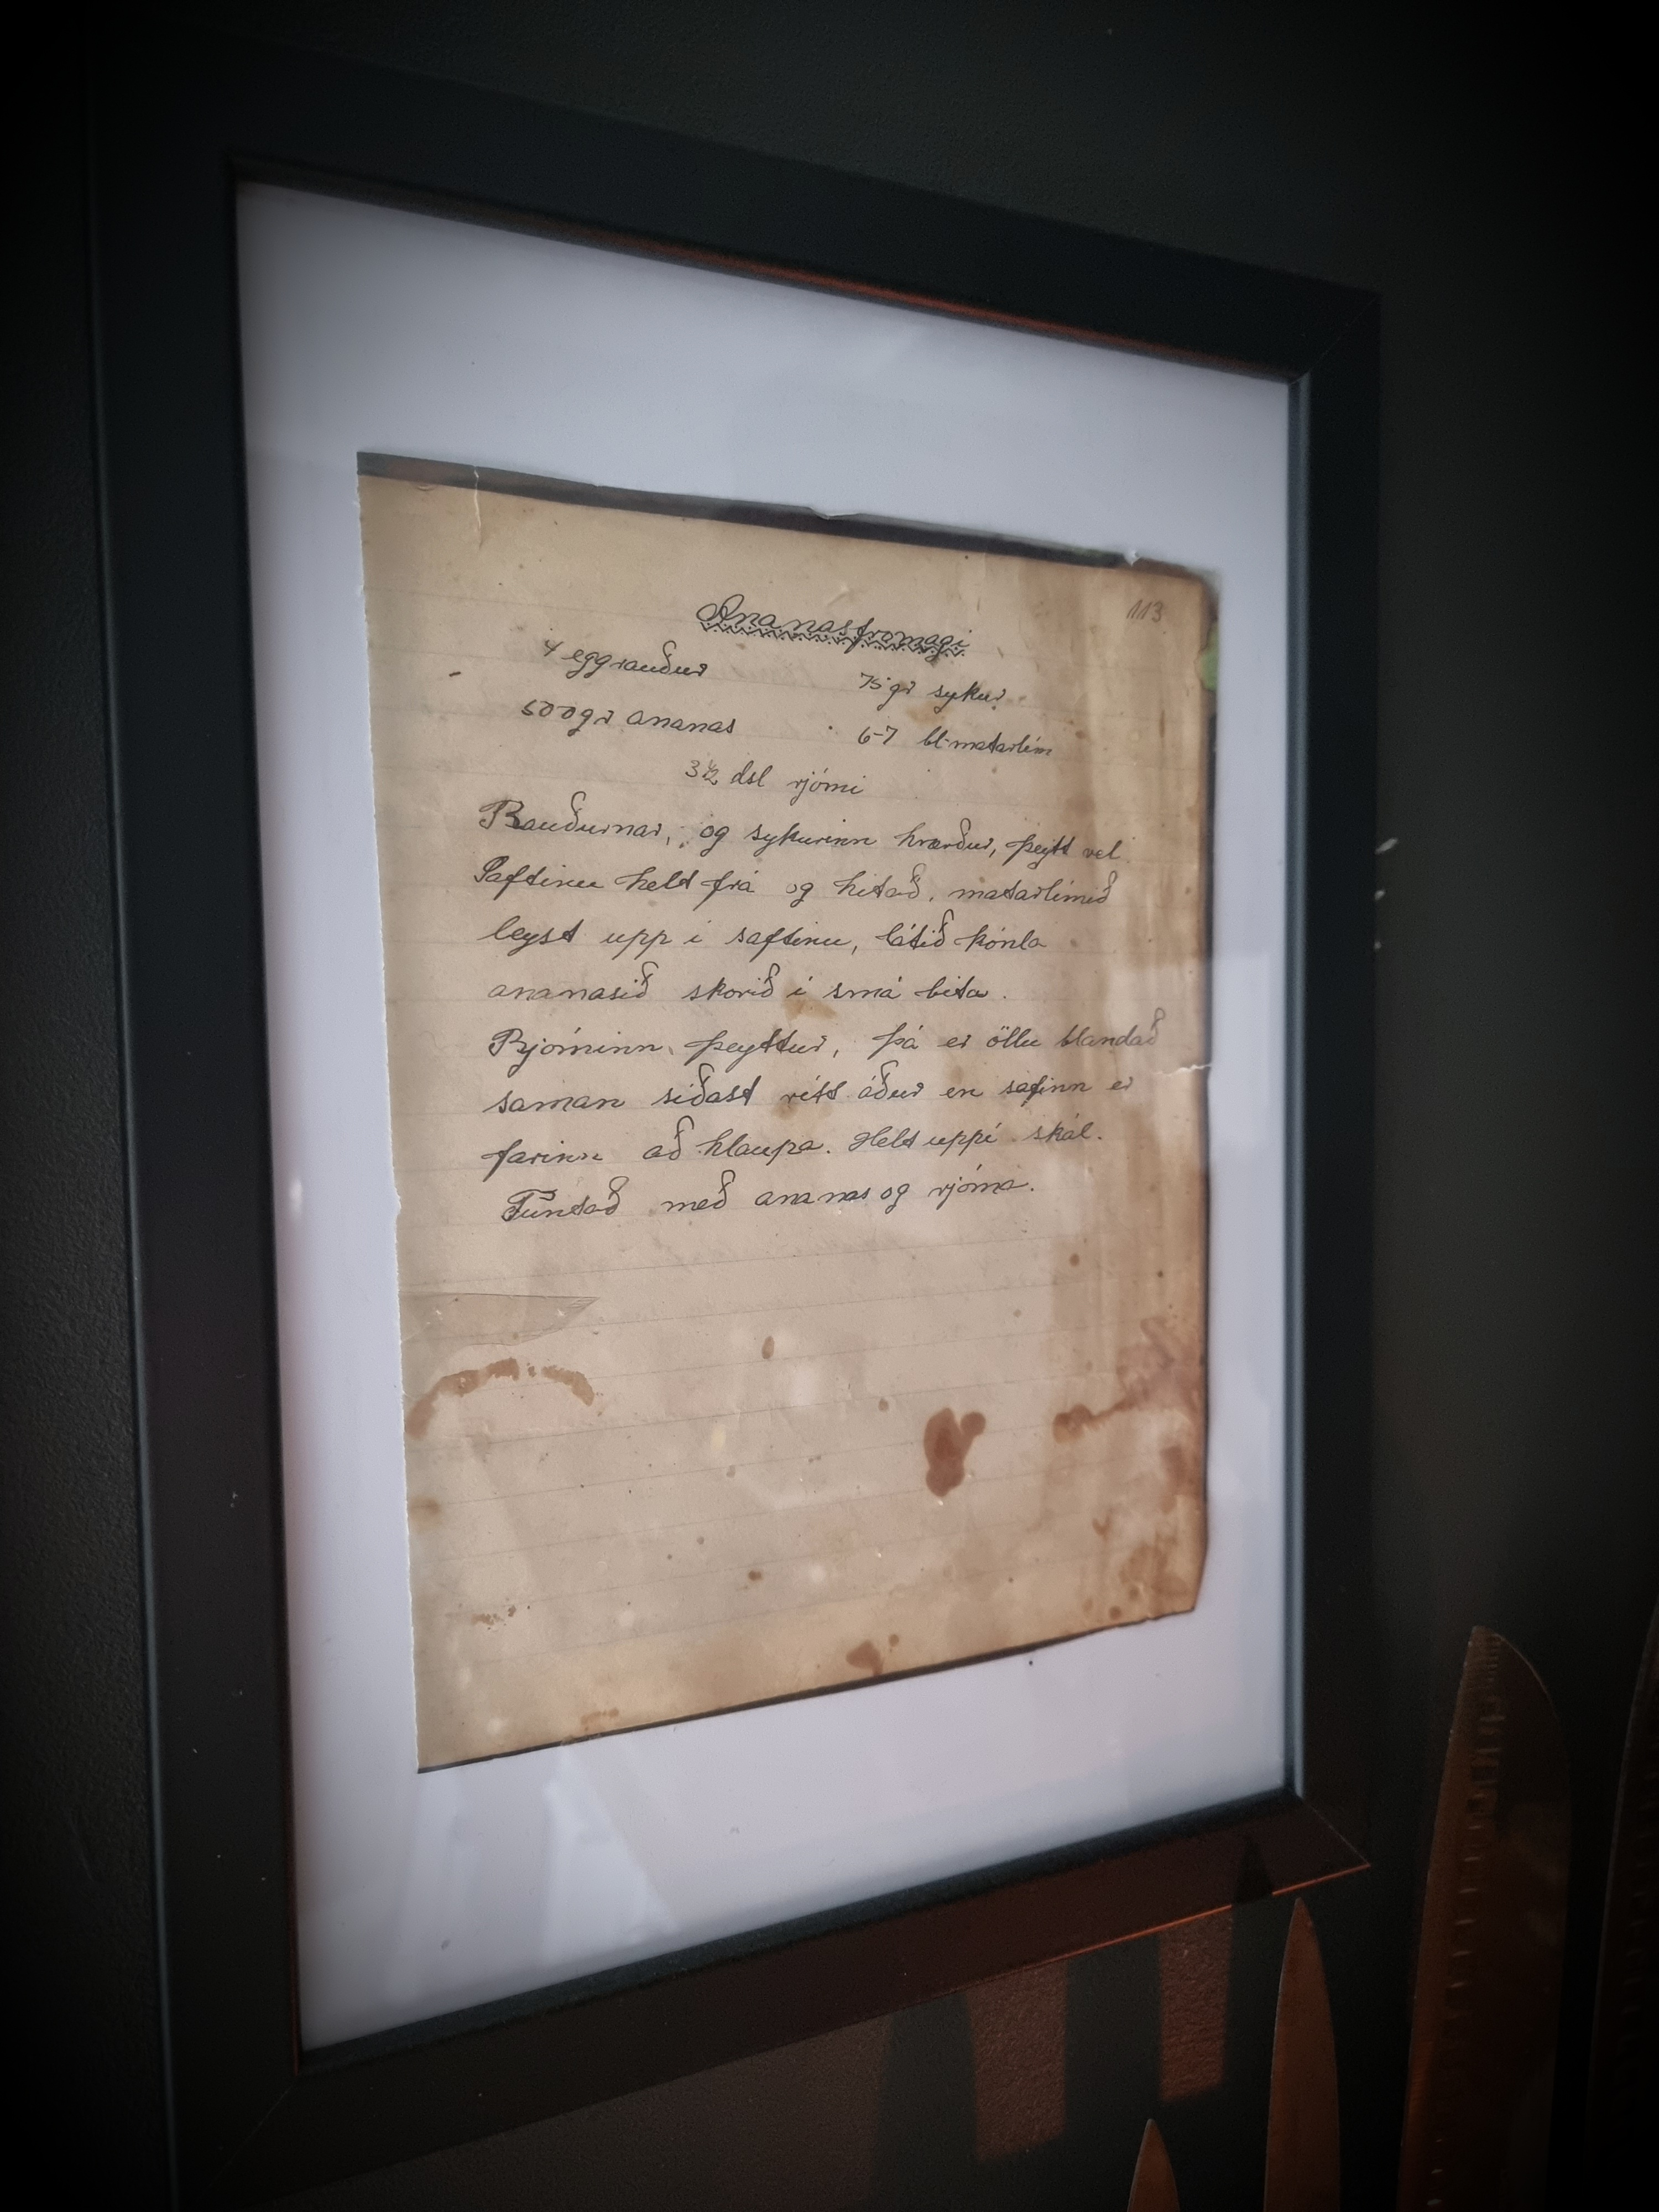 113
Ananasfromagi
4 eggrauður 75 gr sykur
500 gr ananas 6-7 bl. matarlím
3 1/2 dsl rjómi
Rauðurnar, og sykurinn hrærður, þeytt vel
Saftinu helt frá og hitað, matarlímið
leyst upp i saftinu, látið kónla
ananasið skorið i smá bita.
Rjóminn þeyttur, þá er öllu blandað
saman siðast rétt áður en safinn er
farinn að hlaupa. Helt uppí skál.
með ananas og rjóma.